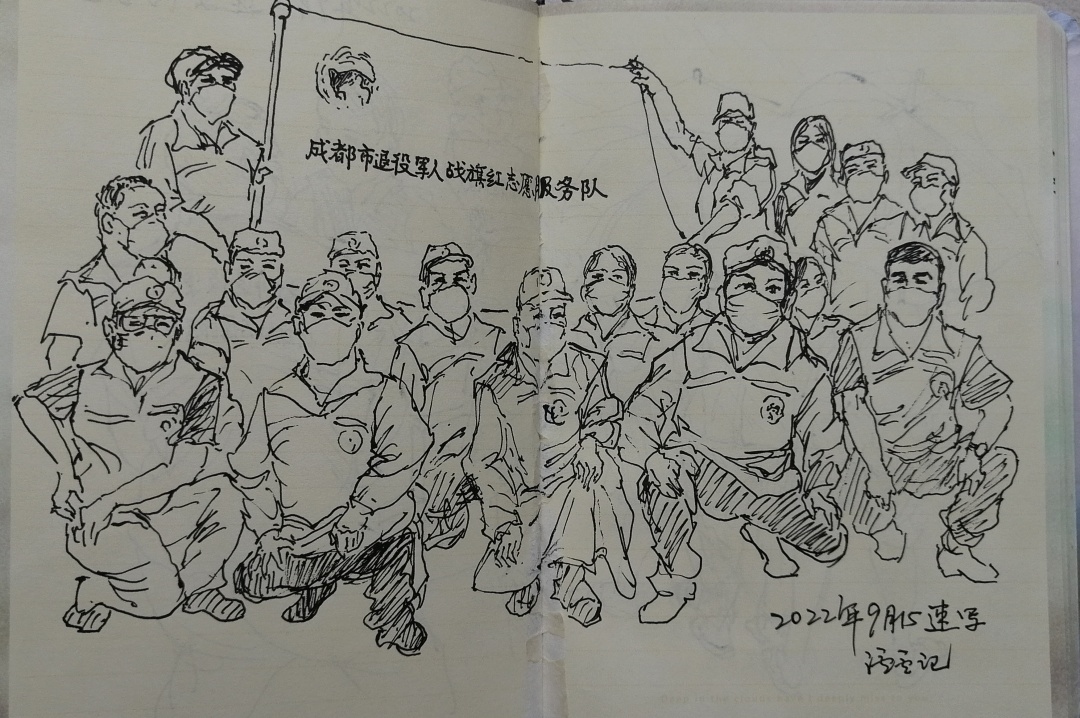 成都市退役军人战旗红志愿服务队
2022年9月15速写
记